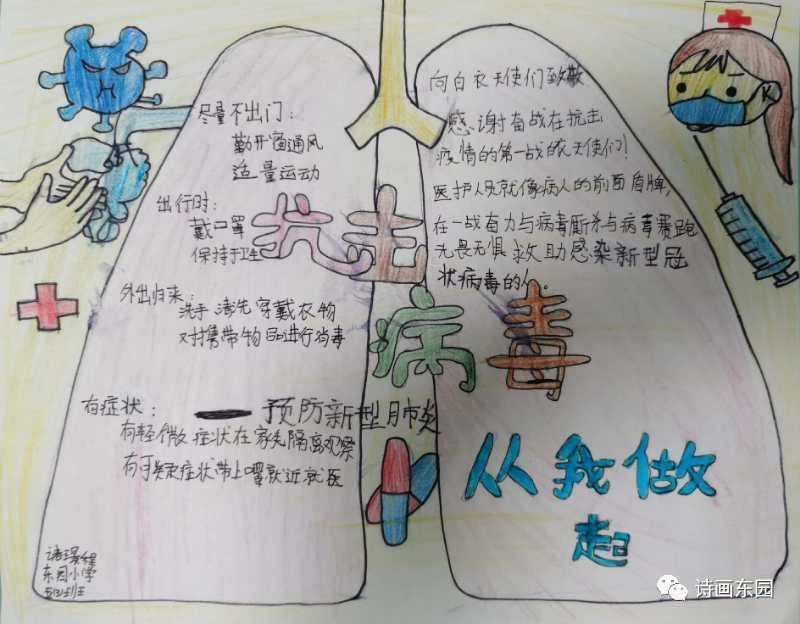 尽量不出门:
勤开窗通风
适量运动
出行时:
戴口罩
保持于卫生
外出归来:
洗手 清洗穿戴衣物
对携带物品进行消毒
有症状:
有轻微症状在家先隔离观察
症状带上口罩就近就医
向白衣天使们致敬
感谢奋战在抗击
疫情的第一战的衣天使们!
医护人员就像病人的前面盾牌,
在一战奋力与病毒厮杀与病毒赛跑
无畏无惧救助感染新型冠
状病毒的人。
抗击
病毒
——预防新型肺炎
从我做
起
东园小学
诗画东园